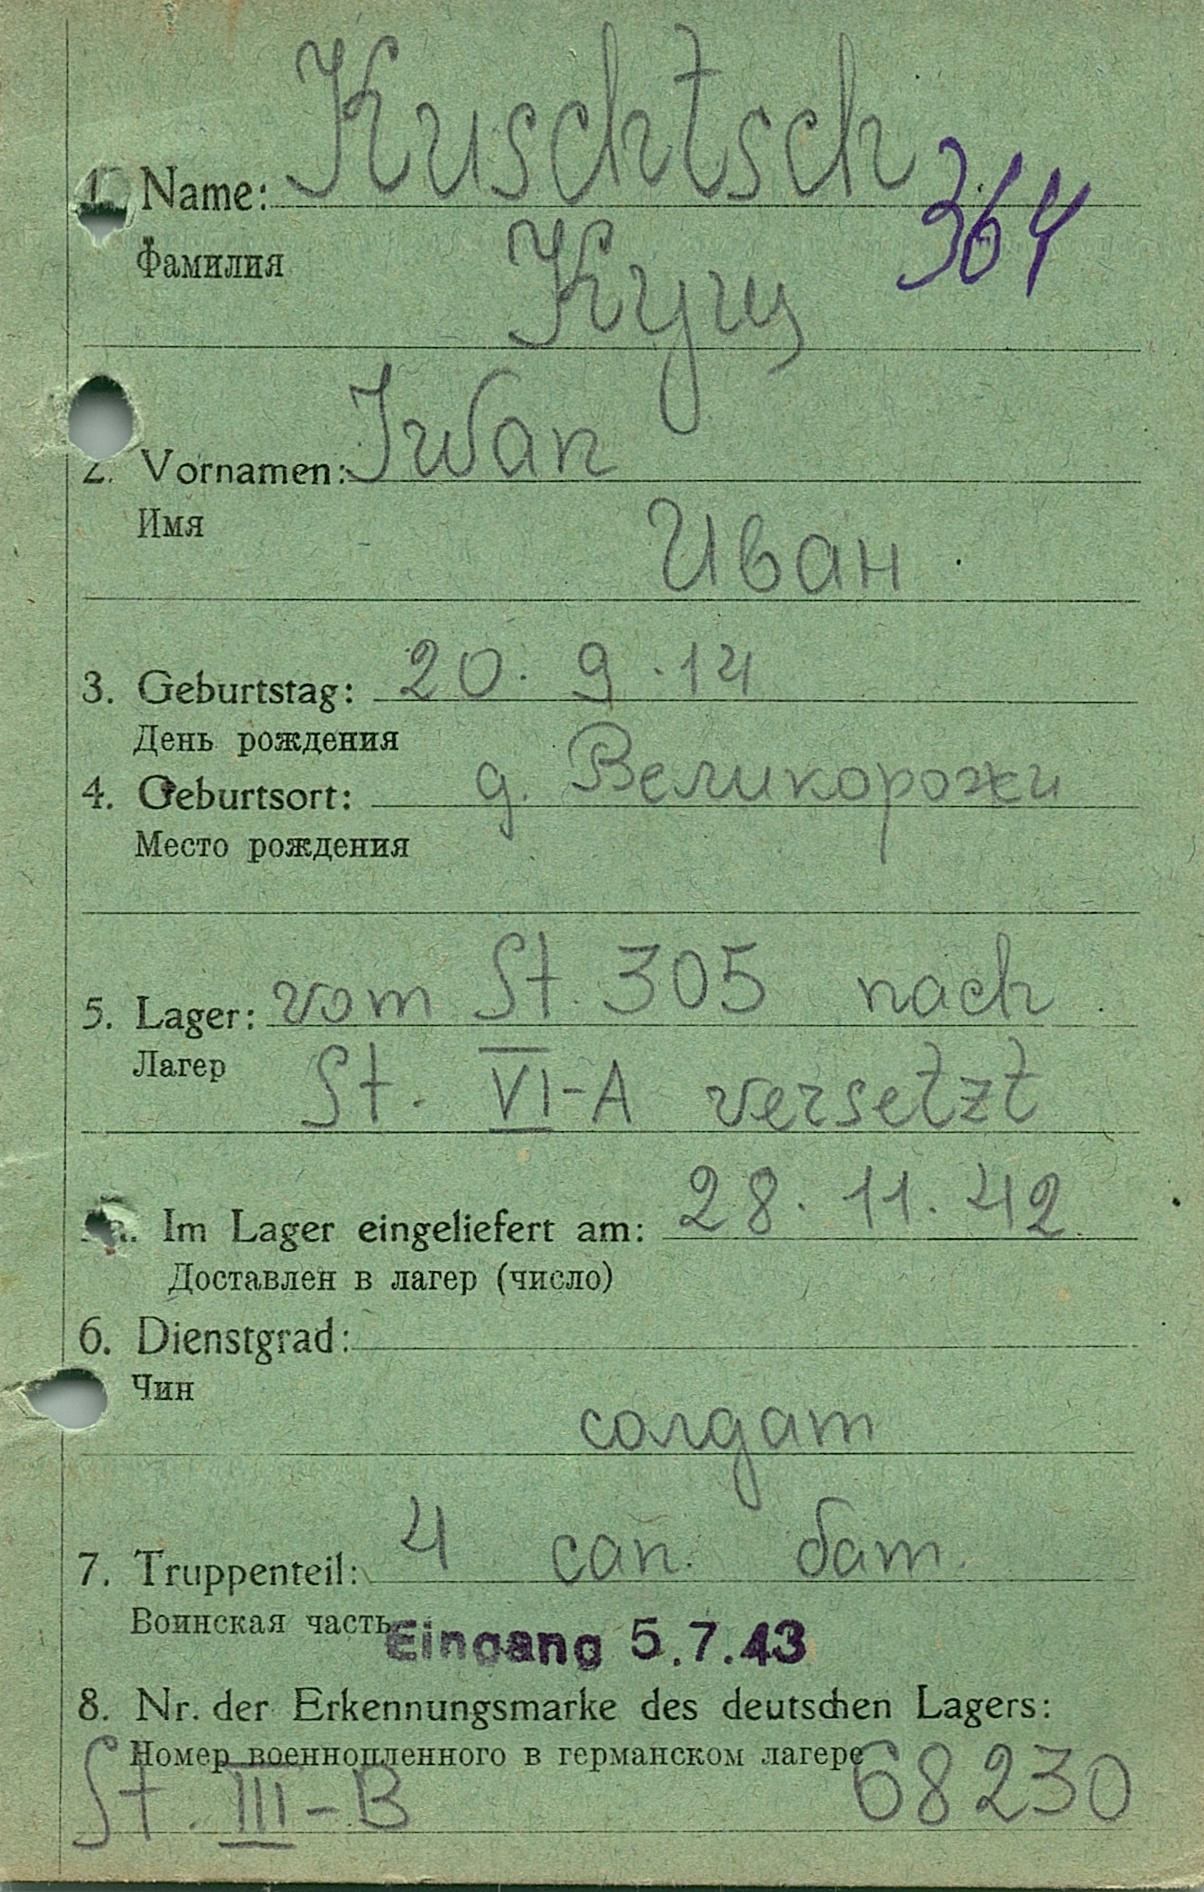 Kuschtsch
1. Name: 364
Фамилия Кущ
2. Vornamen: Iwan
Имя Иван
3. Geburtstag: 20. 9. 14
День рождения
4. Geburtsort: д. Великорожи
Место рождения
5. Lager: vom St. 305 nach
Лагер St. VI-A versetzt
a. Im Lager eingeliefert am: 28. 11. 42
Доставлен в лагер (число)
6. Dienstgrad:
Чин
солдат
7. Truppenteil: 4 сап. бат.
Воинская часть Eingang 5.7.43
8. Nr. der Erkennungsmarke des deutschen Lagers:
Номер военнопленного в германском лагере
St. III-B 68230